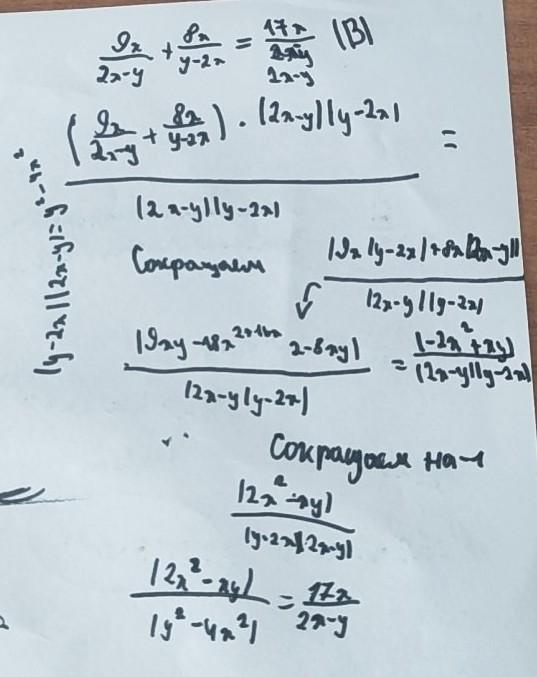 9x/(2x-y) + 8x/(y-2x) = 17x/(2x-y) (B)
(9x/(2x-y) + 8x/(y-2x)) · (2x-y)(y-2x) / (2x-y)(y-2x) =
(y-2x)(2x-y)=y²-4x²
Сокращаем
(9x(y-2x)+8x(2x-y)) / (2x-y)(y-2x)
(9xy-18x²+16x 2-8xy) / (2x-y(y-2x) = (-2x²+xy) / (2x-y)(y-2x)
Сокращаем на -1
(2x²-xy) / (y-2x)(2x-y)
(2x²-xy) / (y²-4x²) = 17x/(2x-y)